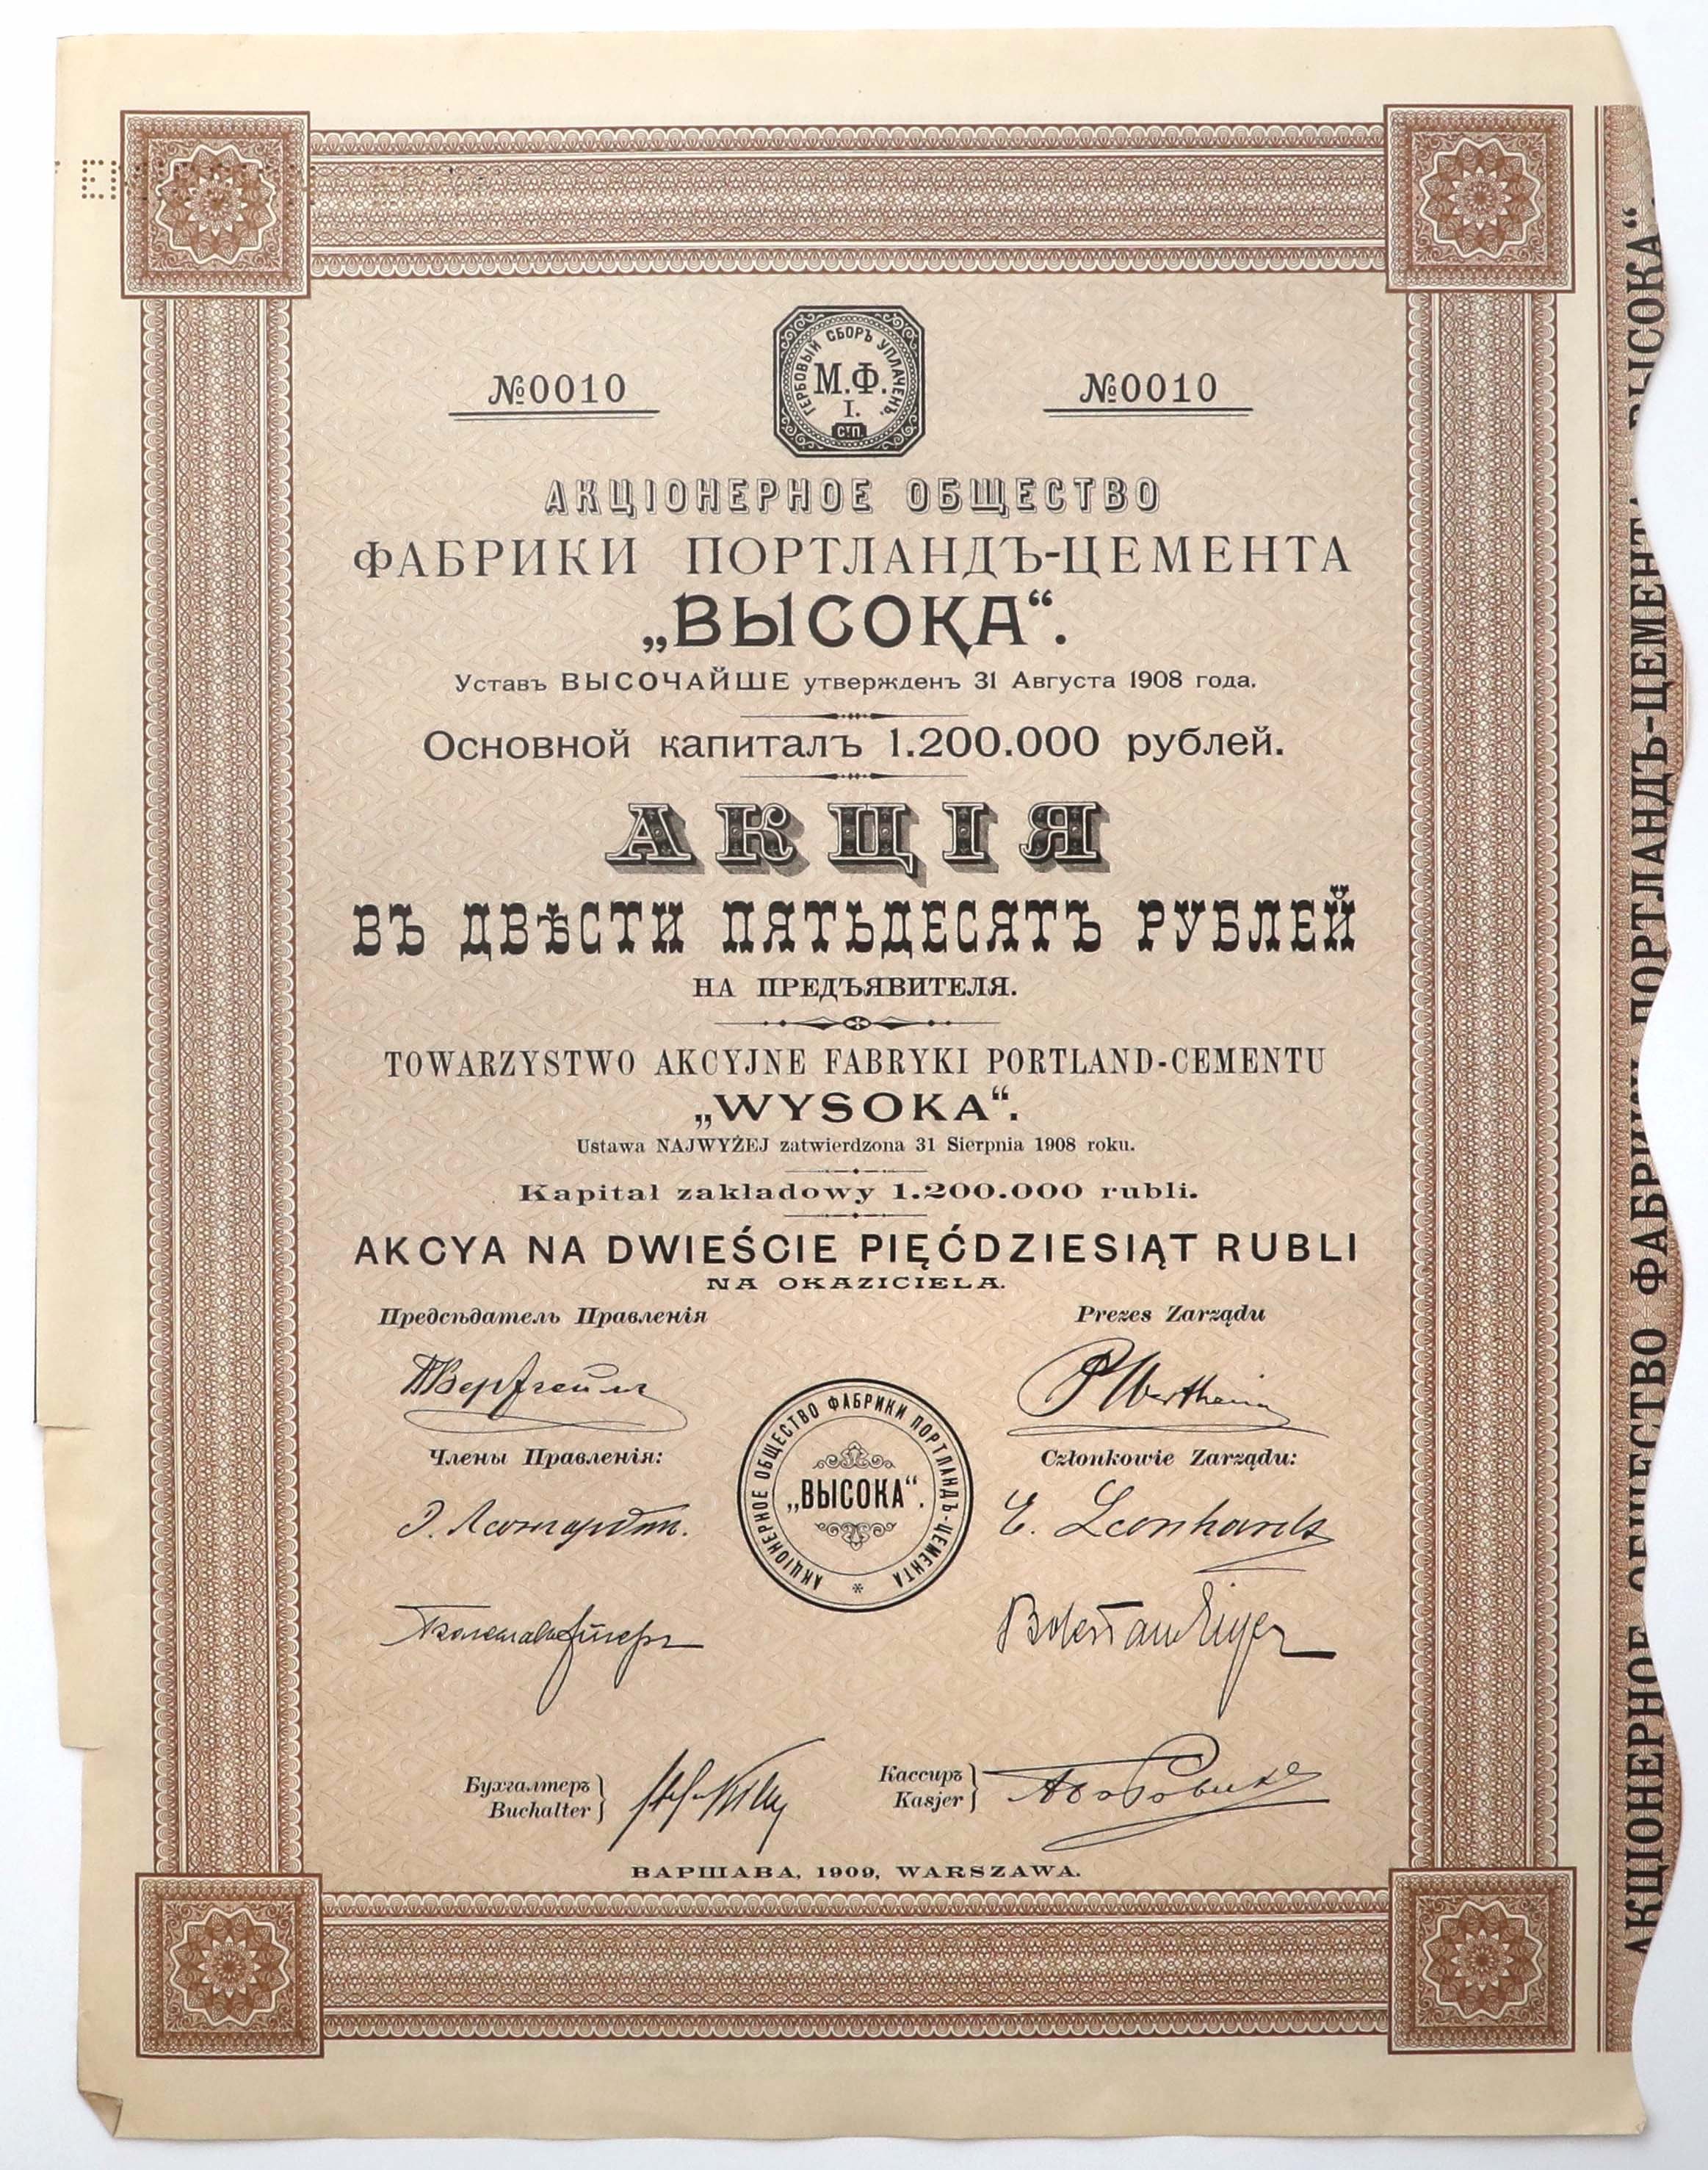 №0010
ГЕРБОВЫЙ СБОРЪ УПЛАЧЕНЪ.
М.Ф.
I.
№0010
АКЦІОНЕРНОЕ ОБЩЕСТВО
ФАБРИКИ ПОРТЛАНДЪ-ЦЕМЕНТА
„ВЫСОКА“.
Уставъ ВЫСОЧАЙШЕ утвержденъ 31 Августа 1908 года.
Основной капиталъ 1.200.000 рублей.
АКЦІЯ
ВЪ ДВѢСТИ ПЯТЬДЕСЯТЪ РУБЛЕЙ
НА ПРЕДЪЯВИТЕЛЯ.
TOWARZYSTWO AKCYJNE FABRYKI PORTLAND-CEMENTU
„WYSOKA“.
Ustawa NAJWYŻEJ zatwierdzona 31 Sierpnia 1908 roku.
Kapitał zakładowy 1.200.000 rubli.
AKCYA NA DWIEŚCIE PIĘĆDZIESIĄT RUBLI
NA OKAZICIELA.
Предсѣдатель Правленія
Prezes Zarządu
P Wertheim
Члены Правленія:
Członkowie Zarządu:
E. Leonhardt
АКЦІОНЕРНОЕ ОБЩЕСТВО ФАБРИКИ ПОРТЛАНДЪ-ЦЕМЕНТА
„ВЫСОКА“.
Bolesław Eiger
Бухгалтеръ
Buchalter
Кассиръ
Kasjer
ВАРШАВА, 1909, WARSZAWA.
АКЦІОНЕРНОЕ ОБЩЕСТВО ФАБРИКИ ПОРТЛАНДЪ-ЦЕМЕНТА ВЫСОКА“